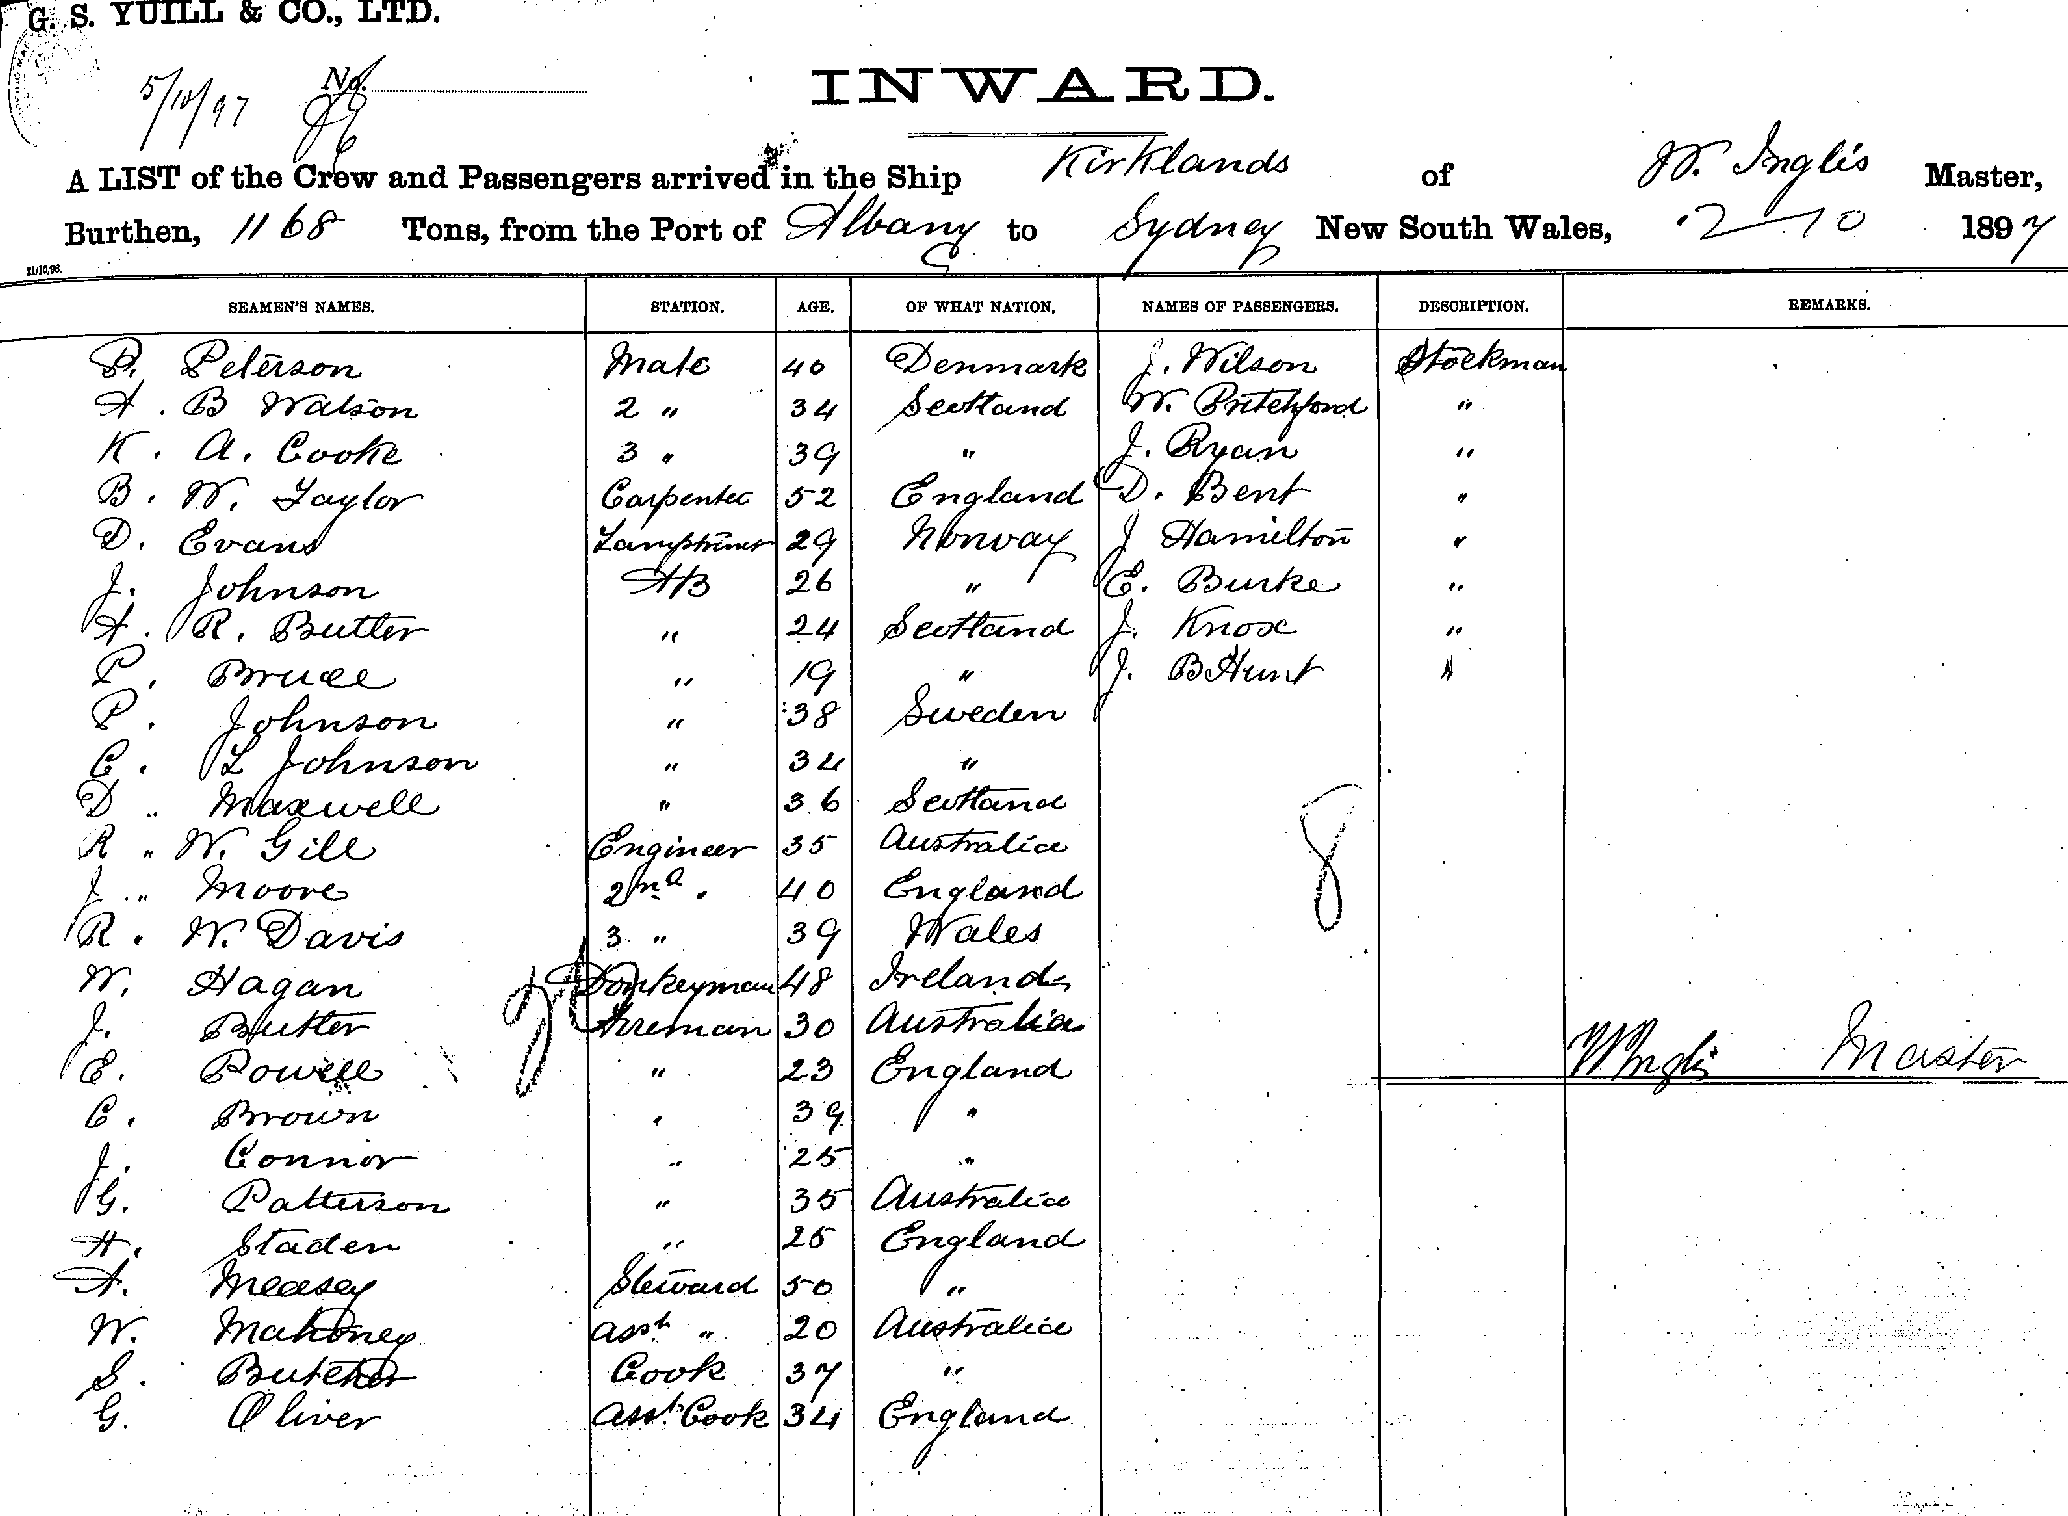 G. S. YUILL & CO., LTD.
5/10/97 No.
INWARD.
A LIST of the Crew and Passengers arrived in the Ship Kirklands of W. Inglis Master,
Burthen, 1168 Tons, from the Port of Albany to Sydney New South Wales, 2-10 1897
21/10/96.
SEAMEN'S NAMES. STATION. AGE. OF WHAT NATION. NAMES OF PASSENGERS. DESCRIPTION. REMARKS.
P. Peterson Mate 40 Denmark J. Wilson Stockman
A. B Watson 2 " 34 Scotland W. Pritchford "
K. A. Cooke 3 " 39 " J. Ryan "
B. W. Taylor Carpenter 52 England D. Bent "
D. Evans Lamptrimer 29 Norway J Hamilton "
J. Johnson AB 26 " E. Burke "
A. R. Butler " 24 Scotland J. Knox "
P. Bruce " 19 " J. B Hunt "
P. Johnson " 38 Sweden
C. L Johnson " 34 "
D " Maxwell " 36 Scotland 8
R " W. Gill Engineer 35 Australia
J " Moore 2nd " 40 England
R. W. Davis 3 " 39 Wales
W. Hagan Donkeyman 48 Ireland
J. Butler Fireman 30 Australia
E. Powell " 23 England W Inglis Master
C. Brown " 39 "
J. Connor " 25 "
G. Patterson " 35 Australia
H. Staden " 25 England
A. Measey Steward 50 "
W. Mahoney Asst " 20 Australia
S. Butcher Cook 37 "
G. Oliver Asst. Cook 34 England